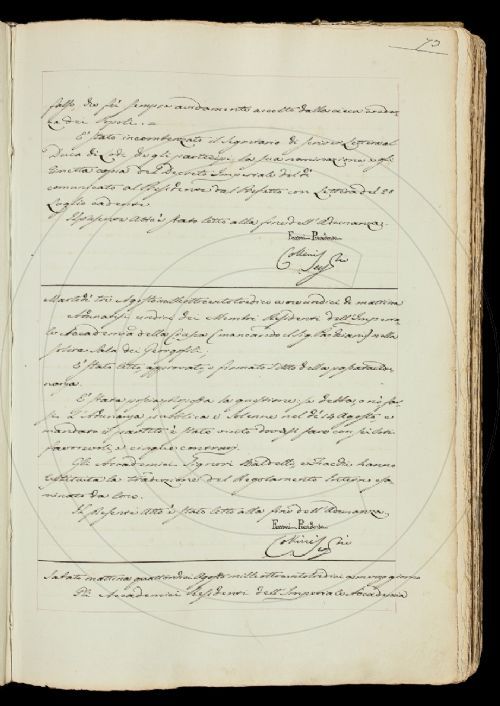 73
falso, che fù sempre avidamente accolto dalla cieca creden-
za dei Popoli. =
È stato incombenzato il Segretario di scriver Lettera al
Duca di Lodi degli partecipi la sua nominazione e gli
trmetta copia del Decreto Imperiale del dì
comunicato al Presidente dal Prefetto con Lettera del 28
Luglio cadente.
Il presente Atto è stato letto alla fine dell'Adunanza.
Ferroni Presidente
Collini Seg.rio
Martedì tre Agosto milleottocentotredici a ore undici di mattina
Adunatisi undici dei Membri Residenti dell'Imperia-
le Accademia della Crusca (mancando il Sig. ) nella
solita Sala dei Georgofili.
È stato letto, approvato, e firmato l'Atto della passata adu-
nanza.
È stata poi a disposta la questione: se debba, o nò far-
si l'Adunanza pubblica e solenne nel dì 14 Agosto e
mandato il partito è stato vinto doversi fare con sei voti
favorevoli, e cinque contrarj.
Gli Accademici Signori Baldelli, e Fiacchi hanno
restituita la traduzione del Regolamento Interno esa-
minato da loro.
Il Presente Atto è stato letto alla fine dell'Adunanza.
Ferroni Presidente
Collini Seg.rio
Sabato mattina quattordici Agosto mille ottocentotredici a mezzo giorno
Gli Accademici Residenti dell'Imperiale Accademia